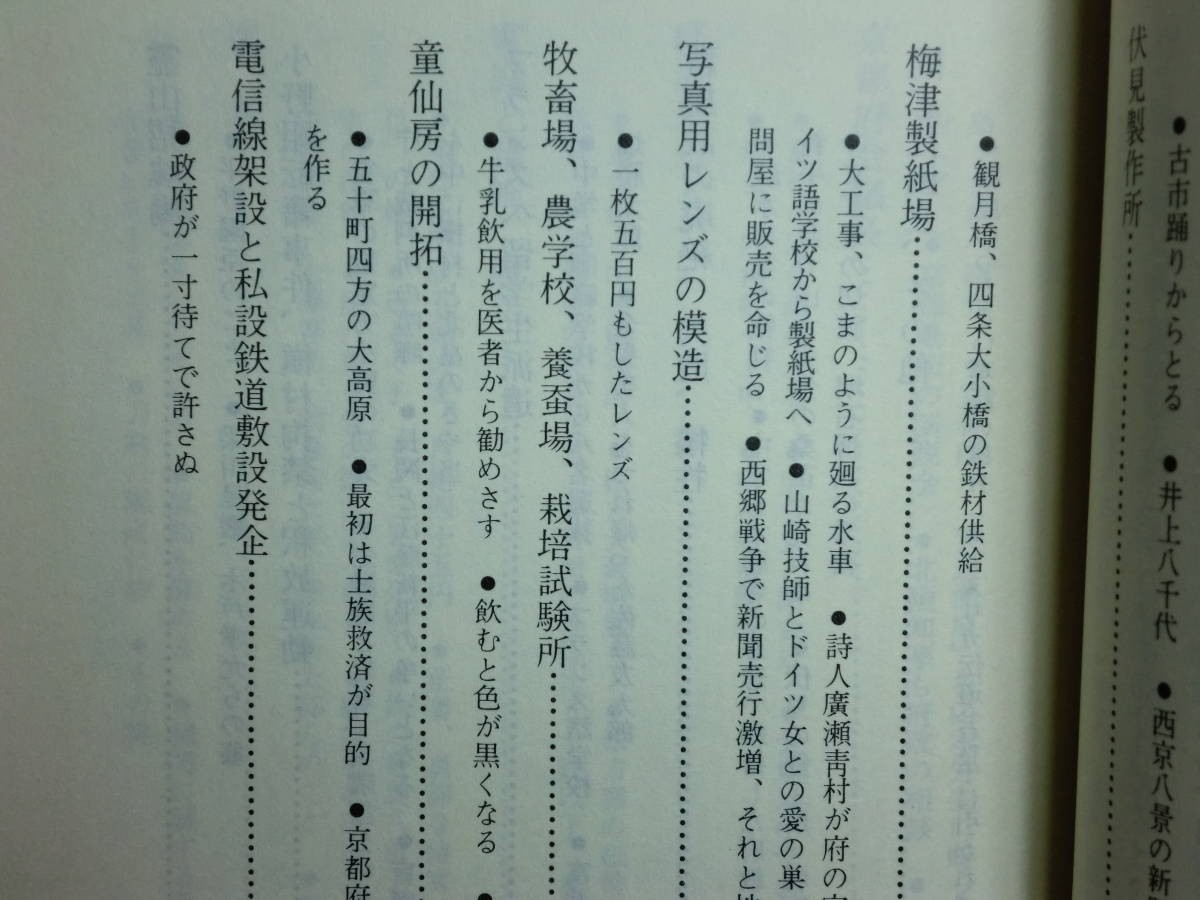 ●古市踊りからとる ●井上八千代 ●西京八景の新
伏見製作所
●観月橋、四条大小橋の鉄材供給
梅津製紙場
●大工事、こまのように廻る水車 ●詩人廣瀬靑村が府の
イツ語学校から製紙場へ ●山崎技師とドイツ女との愛の巣
問屋に販売を命じる ●西郷戦争で新聞売行激増、それと
写真用レンズの模造
●一枚五百円もしたレンズ
牧畜場、農学校、養蚕場、栽培試験所
●牛乳飲用を医者から勧めさす ●飲むと色が黒くなる ●
童仙房の開拓
●五十町四方の大高原 ●最初は士族救済が目的 ●京都府
を作る
電信線架設と私設鉄道敷設発企
●政府が一寸待てで許さぬ